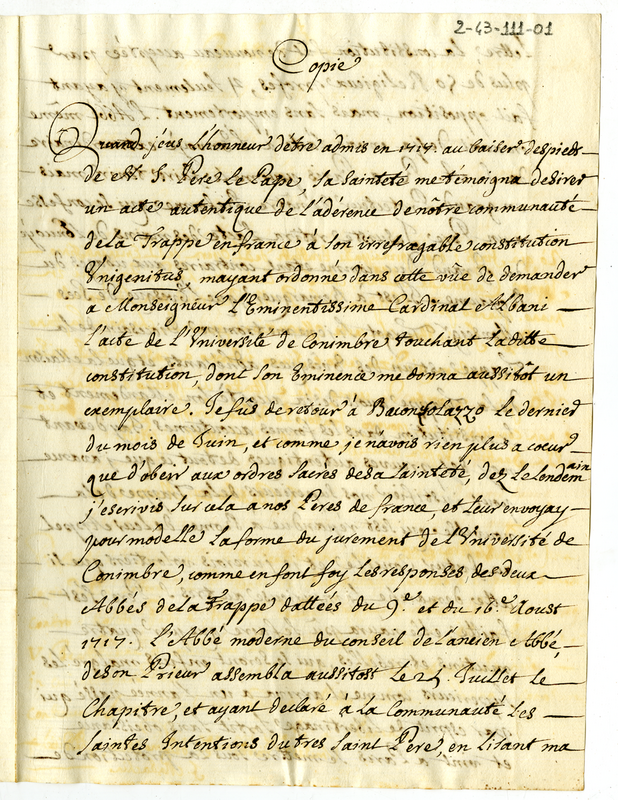 2-43-111-01
Copie
Quand j'eus l'honneur d'être admis en 1717. au baiser des pieds
de N. S. Pere Le Pape, sa Sainteté me témoigna desirer
un acte autentique de l'adérence de nôtre communauté
de la Trappe en france à son irrefragable constitution
Unigenitus, mayant ordonné dans cette vüe de demander
a Monseigneur l'Eminentissime Cardinal Albani
l'acte de l'Université de Conimbre touchant laditte
constitution, dont son Eminence me donna aussitôt un
exemplaire. Je fûs de retour à Buonsolazzo le dernier
du mois de Juin, et comme je n'avois rien plus a coeur
que d'obeir aux ordres sacrés de sa sainteté, dez le londemain
j'escrivis sur cela a nos Peres de france, et leur envoyay
pour modelle la forme du jurement de l'Université de
Conimbre, comme en font foy les responses des deux
Abbés de la Trappe dattées du 9.e et du 16.e Aoust
1717. L'Abbé moderne du conseil de l'ancien Abbé,
de son Prieur assembla aussitost le 25. Juillet le
Chapitre, et ayant declaré à la Communauté les
saintes Intentions du tres saint Pere, en lisant ma